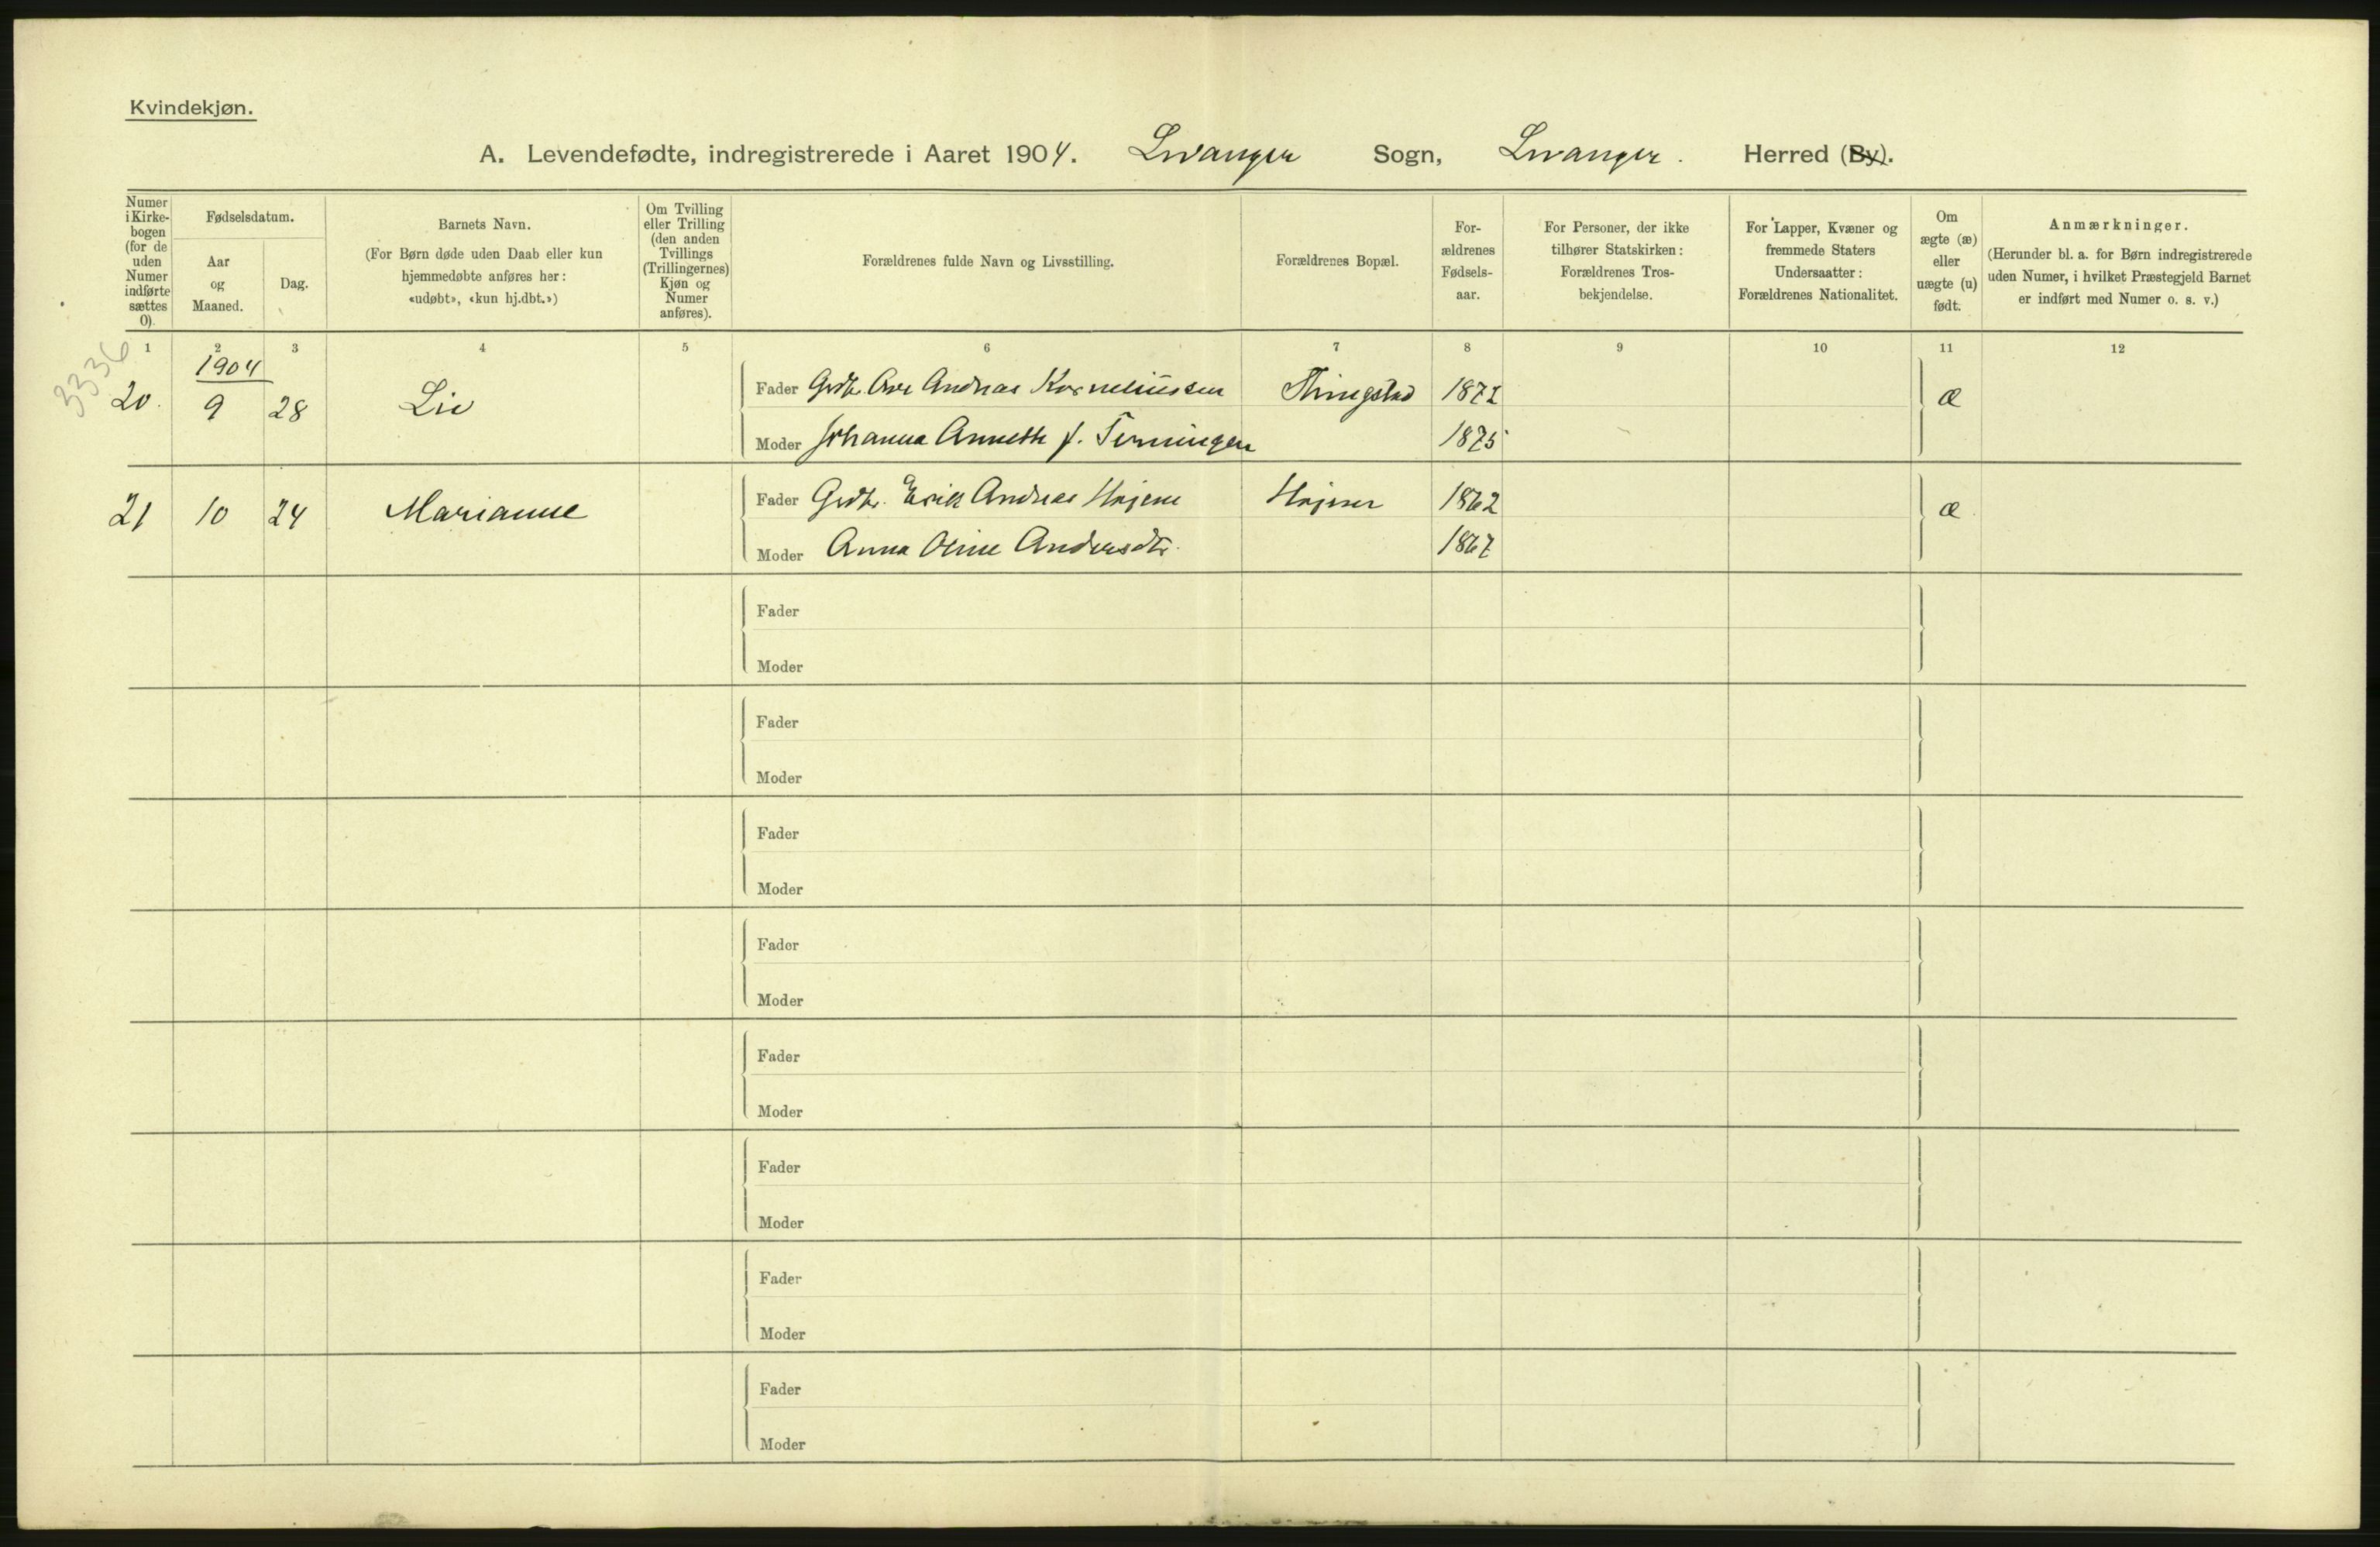 Kvindekjøn.
A. Levendefødte, indregistrerede i Aaret 1904. Levanger Sogn, Levanger. Herred (By).
Numer i Kirkebogen (for de uden Numer indførte sættes 0).
Fødselsdatum.
Aar og Maaned.
Dag.
Barnets Navn.
(For Børn døde uden Daab eller kun
hjemmedøbte anføres her:
«udøbt», «kun hj.dbt.»)
Om Tvilling
eller Trilling
(den anden
Tvillings
(Trillingernes)
Kjøn og
Numer
anføres).
Forældrenes fulde Navn og Livsstilling.
Forældrenes Bopæl.
For-
ældrenes
Fødsels-
aar.
For Personer, der ikke
tilhører Statskirken:
Forældrenes Tros-
bekjendelse.
For Lapper, Kvæner og
fremmede Staters
Undersaatter:
Forældrenes Nationalitet.
Om
ægte (æ)
eller
uægte (u)
født.
Anmærkninger.
(Herunder bl. a. for Børn indregistrerede
uden Numer, i hvilket Præstegjeld Barnet
er indført med Numer o. s. v.)
1 2 3 4 5 6 7 8 9 10 11 12
3336
1904
20. 9 28 Liv Fader Grdbr. Andreas Korneliussen Thingstad 1872 æ
Moder Johanna Annette f. 1875
21 10 24 Marianne Fader Grdbr. Erik Andreas 1862 æ
Moder Anna Oline Andersdtr. 1867
Fader
Moder
Fader
Moder
Fader
Moder
Fader
Moder
Fader
Moder
Fader
Moder
Fader
Moder
Fader
Moder